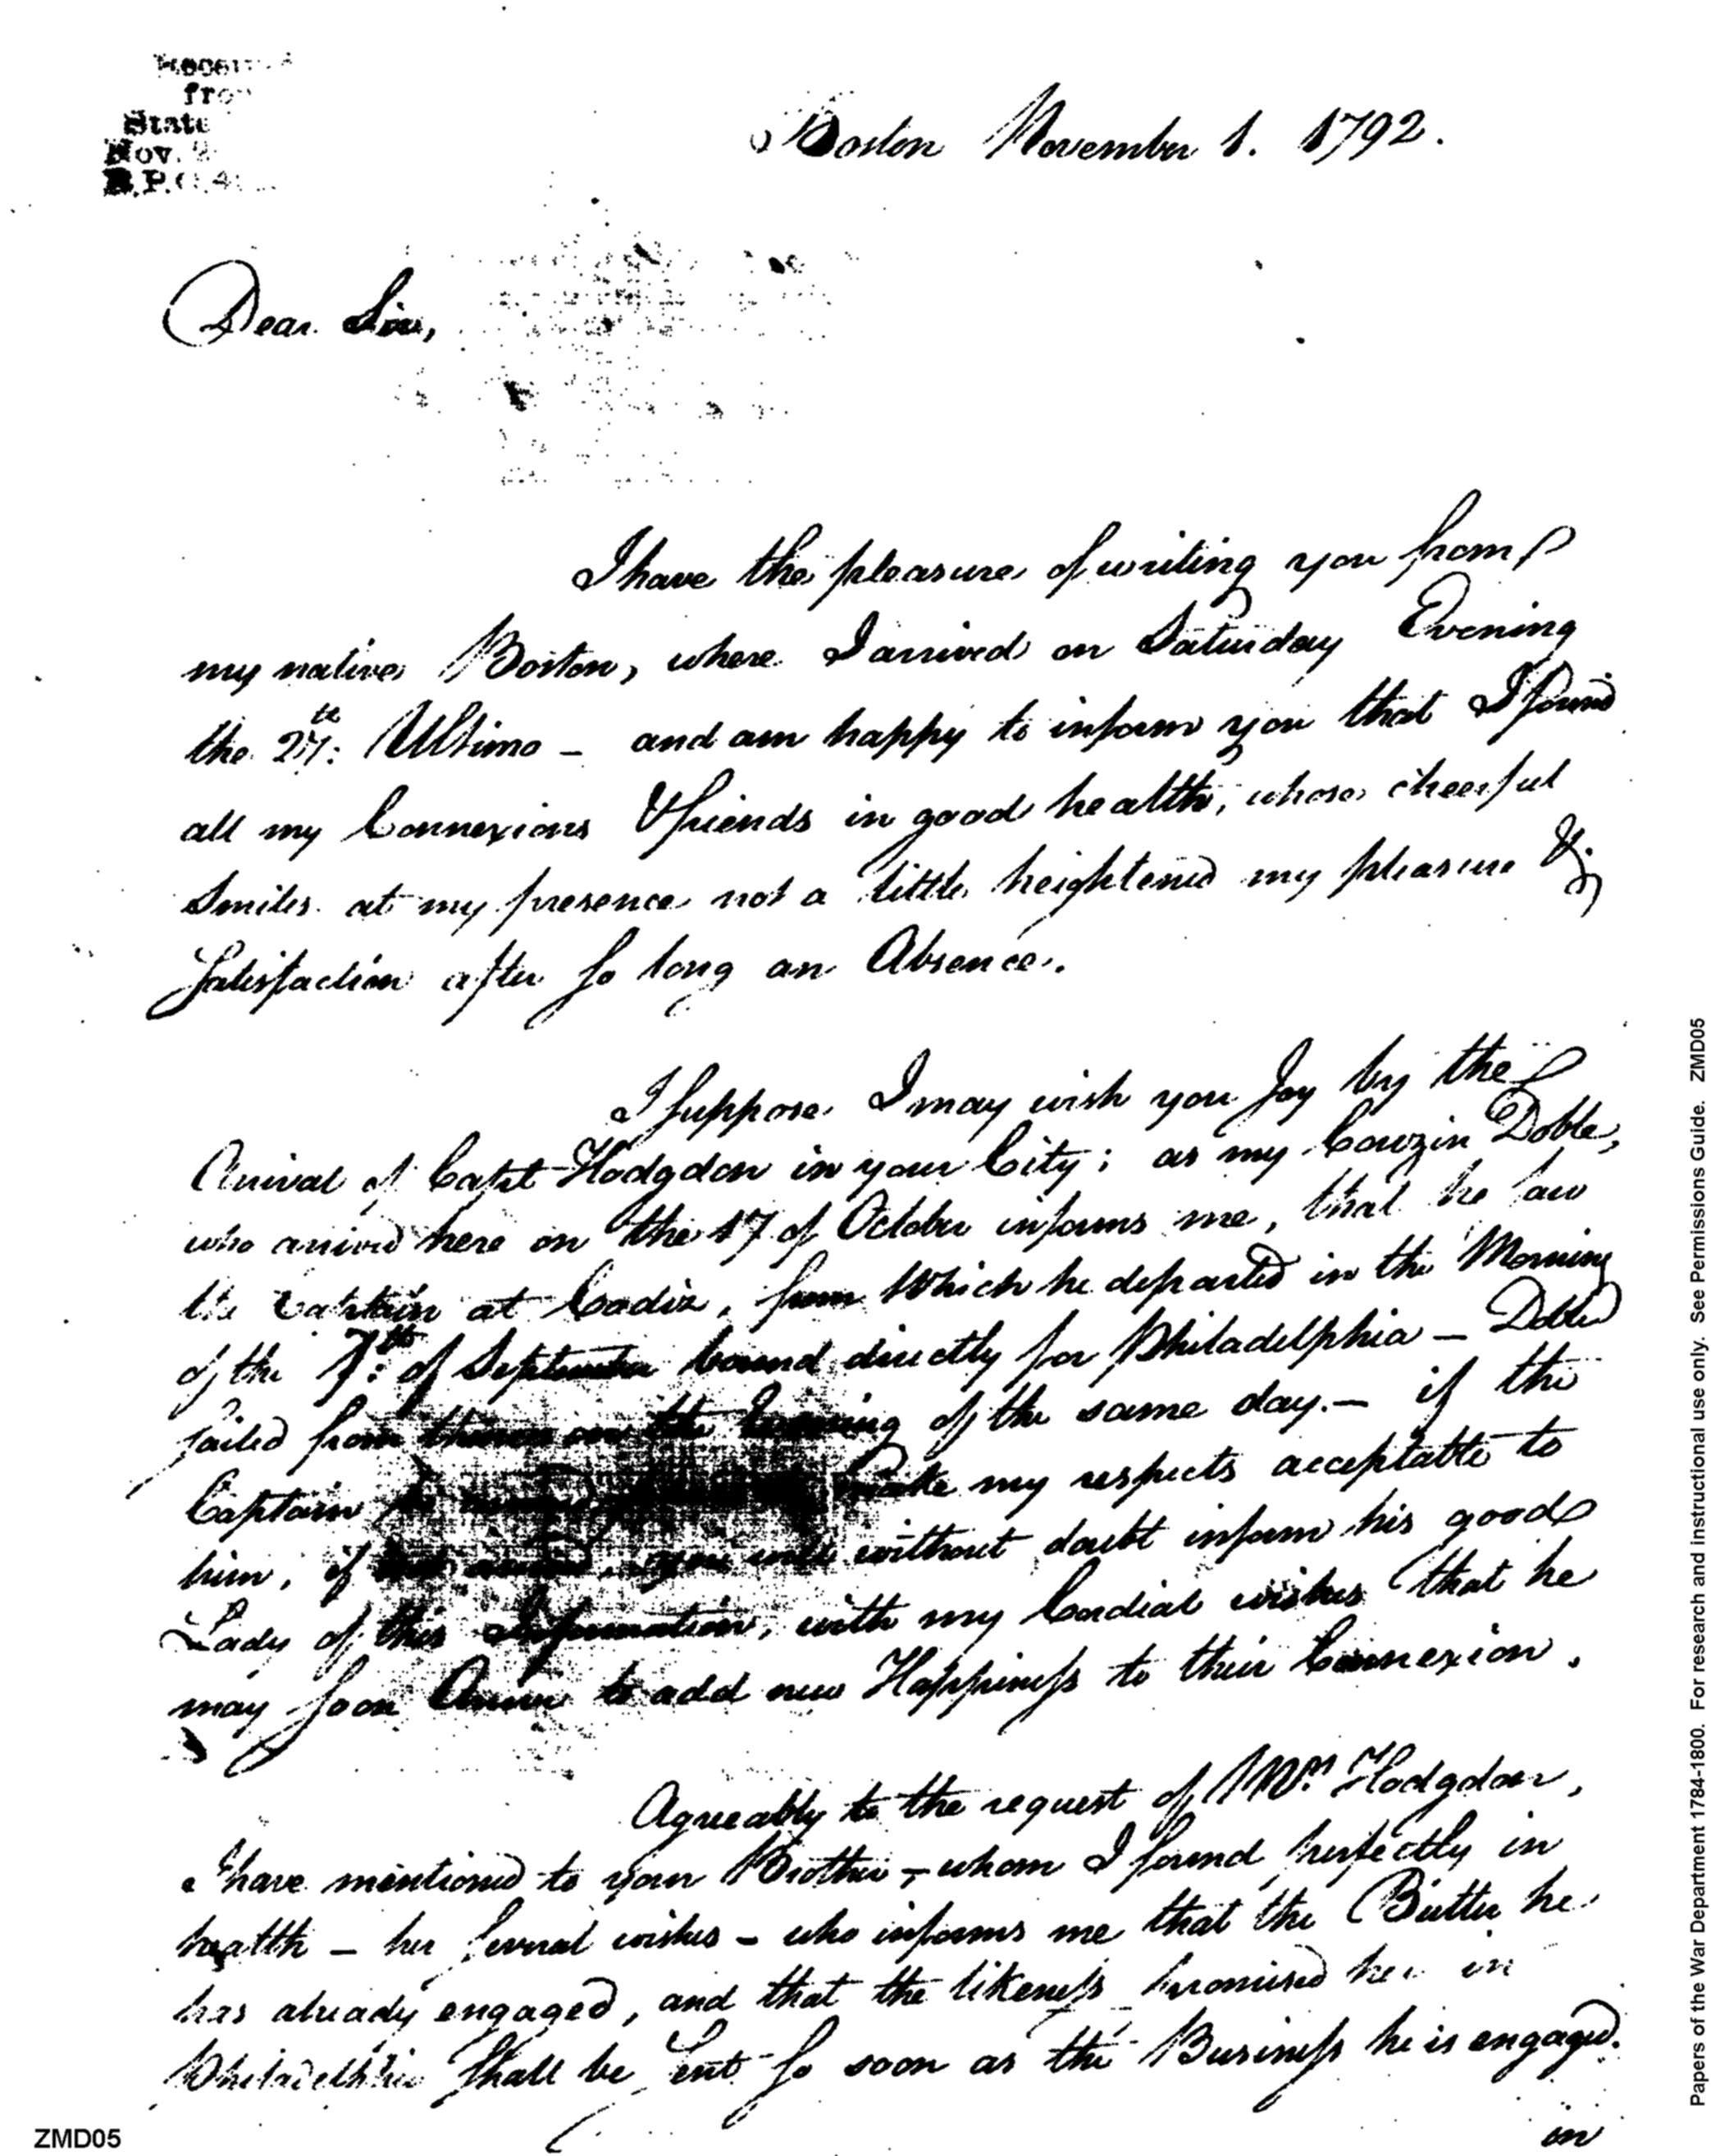 from
State
Nov.
Boston November 1. 1792.
Dear Sir,
I have the pleasure of writing you from
my native Boston, where I arrived on Saturday Evening
the 27th: Ultimo – and am happy to inform you that I found
all my Connexions & friends in good health, whose cheerful
Smiles at my presence not a little heightened my pleasure &
Satisfaction after so long an Absence.
I suppose I may wish you Joy by the
Arrival of Capt Hodgdon in your City; as my Couzin Doble,
who arrived here on the 17 of October informs me, that he saw
the Captain at Cadiz, from Which he departed in the Morning
of the 7th: of September bound directly for Philadelphia – Doble
sailed from thence on the Evening of the same day. – if the
Captain make my respects acceptable to
him, if not arrived, you will without doubt inform his good
Lady of this Information, with my Cordial wishes that he
may soon Arrive to add new Happiness to their Connexion.
Agreeably to the request of Mrs Hodgdon,
I have mentioned to your Brother – whom I found perfectly in
health – her several wishes – who informs me that the Butter he
has already engaged, and that the likeness promised her in
Philadelphia shall be sent so soon as the Business he is engaged
in
ZMD05
Papers of the War Department 1784-1800. For research and instructional use only. See Permissions Guide. ZMD05